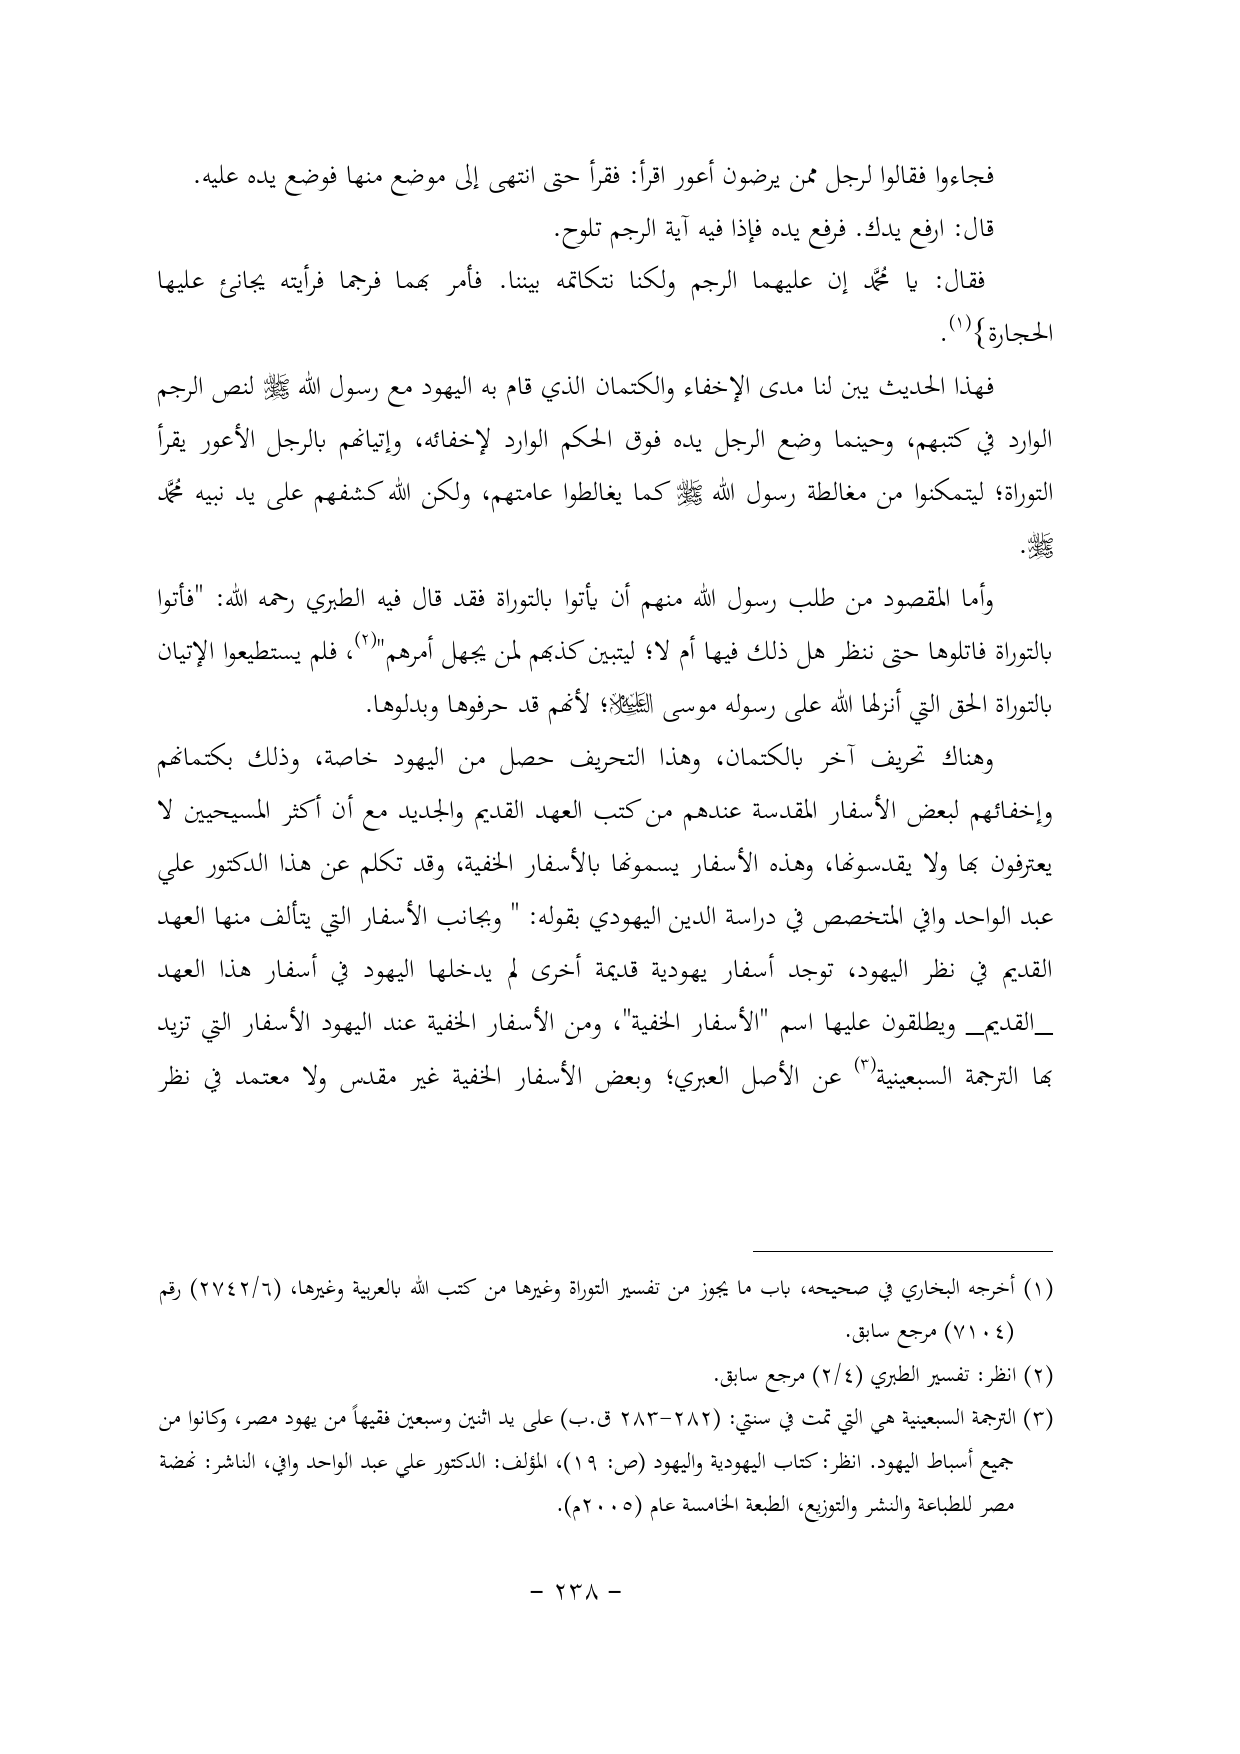 فجاءوا فقالوا لرجل ممن يرضون أعور اقرأ: فقرأ حتى انتهى إلى موضع منها فوضع يده عليه.
قال: ارفع يدك. فرفع يده فإذا فيه آية الرجم تلوح.
فقال: يا محمَّد إن عليهما الرجم ولكنا نتكاتمه بيننا. فأمر بهما فرجما فرأيته يجانئ عليها
الحجارة}(١).
فهذا الحديث يبن لنا مدى الإخفاء والكتمان الذي قام به اليهود مع رسول الله ﷺ لنص الرجم
الوارد في كتبهم، وحينما وضع الرجل يده فوق الحكم الوارد لإخفائه، وإتيانهم بالرجل الأعور يقرأ
التوراة؛ ليتمكنوا من مغالطة رسول الله ﷺ كما يغالطوا عامتهم، ولكن الله كشفهم على يد نبيه محمَّد
ﷺ.
وأما المقصود من طلب رسول الله منهم أن يأتوا بالتوراة فقد قال فيه الطبري رحمه الله: "فأتوا
بالتوراة فاتلوها حتى ننظر هل ذلك فيها أم لا؛ ليتبين كذبهم لمن يجهل أمرهم"(٢)، فلم يستطيعوا الإتيان
بالتوراة الحق التي أنزلها الله على رسوله موسى عليه السلام؛ لأنهم قد حرفوها وبدلوها.
وهناك تحريف آخر بالكتمان، وهذا التحريف حصل من اليهود خاصة، وذلك بكتمانهم
وإخفائهم لبعض الأسفار المقدسة عندهم من كتب العهد القديم والجديد مع أن أكثر المسيحيين لا
يعترفون بها ولا يقدسونها، وهذه الأسفار يسمونها بالأسفار الخفية، وقد تكلم عن هذا الدكتور علي
عبد الواحد وافي المتخصص في دراسة الدين اليهودي بقوله: " وبجانب الأسفار التي يتألف منها العهد
القديم في نظر اليهود، توجد أسفار يهودية قديمة أخرى لم يدخلها اليهود في أسفار هذا العهد
_القديم_ ويطلقون عليها اسم "الأسفار الخفية"، ومن الأسفار الخفية عند اليهود الأسفار التي تزيد
بها الترجمة السبعينية(٣) عن الأصل العبري؛ وبعض الأسفار الخفية غير مقدس ولا معتمد في نظر
(١) أخرجه البخاري في صحيحه، باب ما يجوز من تفسير التوراة وغيرها من كتب الله بالعربية وغيرها، (٢٧٤٢/٦) رقم
(٧١٠٤) مرجع سابق.
(٢) انظر: تفسير الطبري (٢/٤) مرجع سابق.
(٣) الترجمة السبعينية هي التي تمت في سنتي: (٢٨٢-٢٨٣ ق.ب) على يد اثنين وسبعين فقيهاً من يهود مصر، وكانوا من
جميع أسباط اليهود. انظر: كتاب اليهودية واليهود (ص: ١٩)، المؤلف: الدكتور علي عبد الواحد وافي، الناشر: نهضة
مصر للطباعة والنشر والتوزيع، الطبعة الخامسة عام (٢٠٠٥م).
- ٢٣٨ -